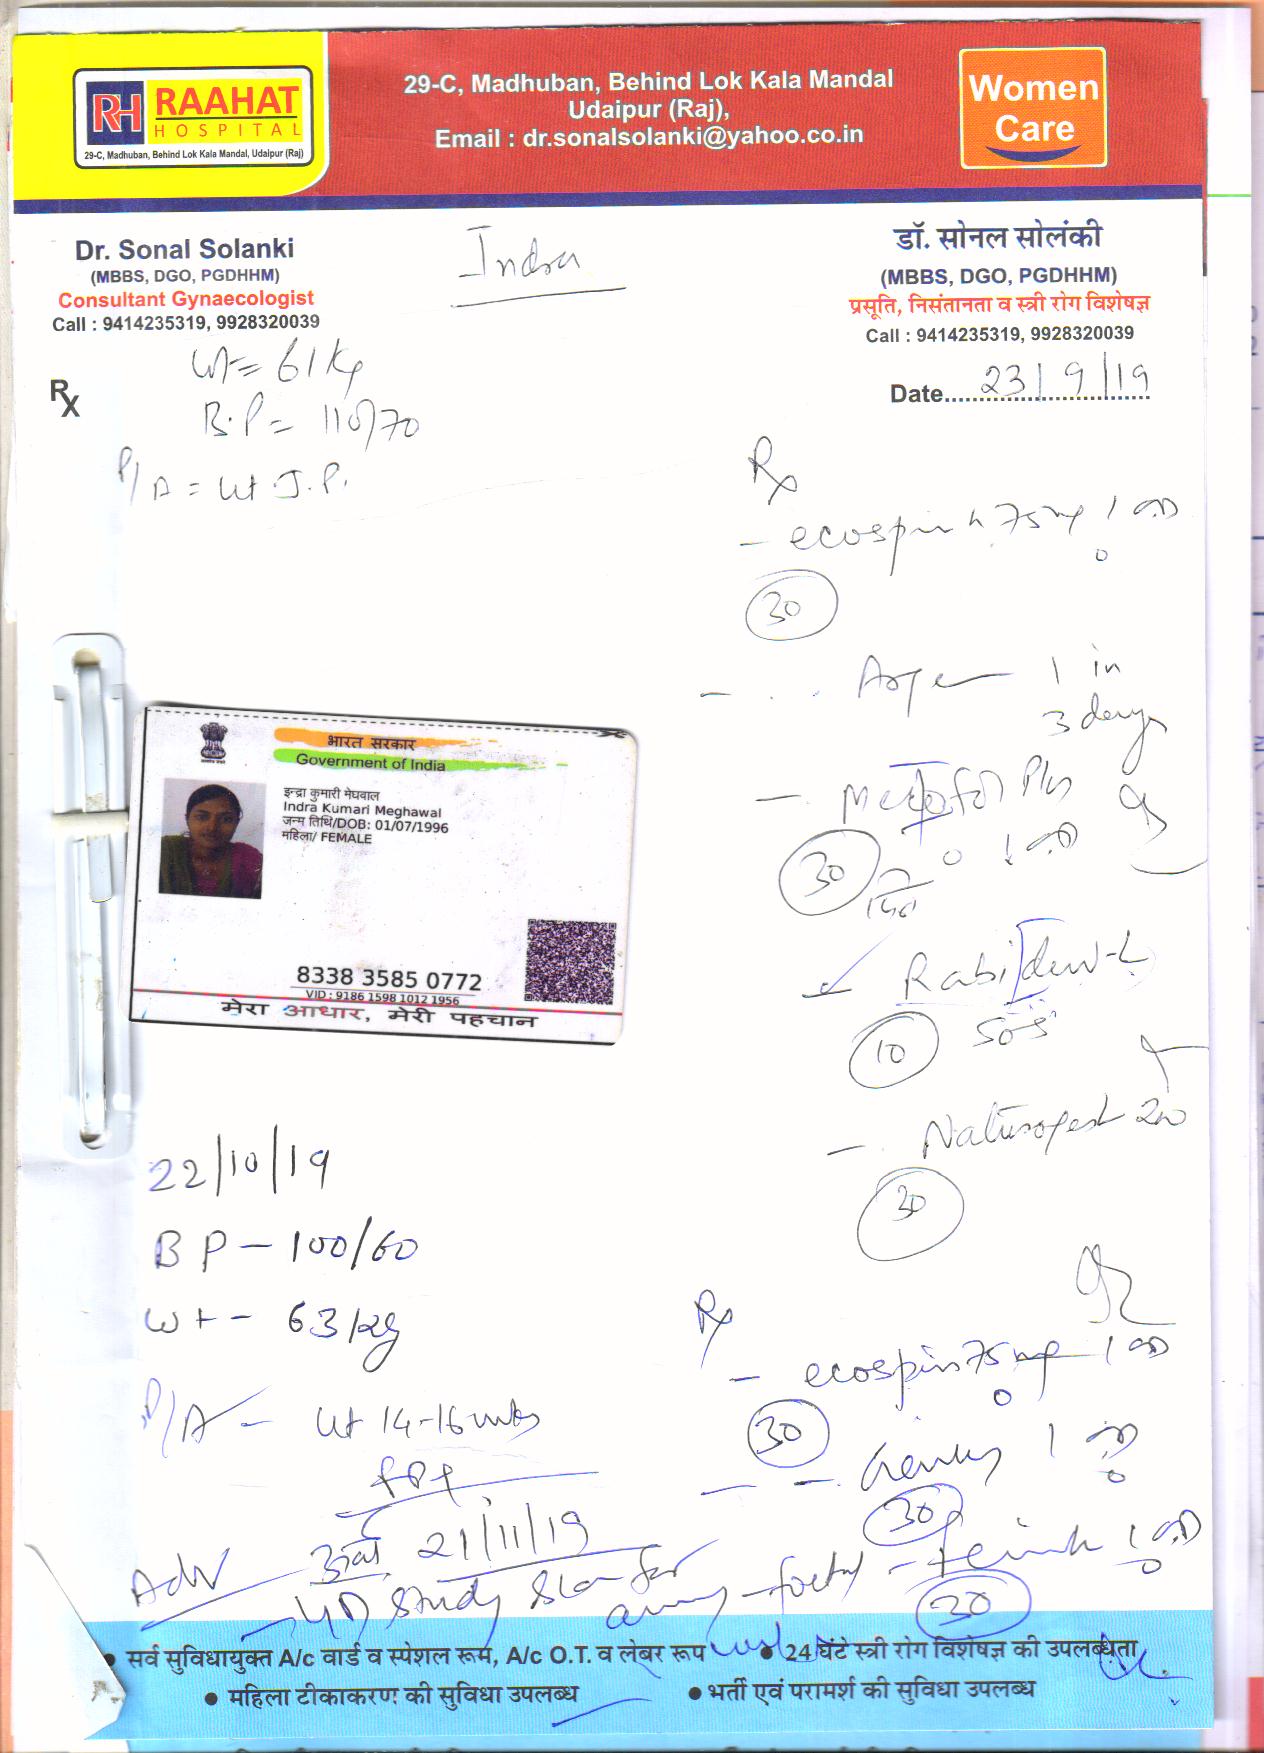 RH RAAHAT
HOSPITAL
29-C, Madhuban, Behind Lok Kala Mandal, Udaipur (Raj)
29-C, Madhuban, Behind Lok Kala Mandal
Udaipur (Raj),
Email : dr.sonalsolanki@yahoo.co.in
Women
Care
Dr. Sonal Solanki
(MBBS, DGO, PGDHHM)
Consultant Gynaecologist
Call : 9414235319, 9928320039
Indra
डॉ. सोनल सोलंकी
(MBBS, DGO, PGDHHM)
प्रसूति, निसंतानता व स्त्री रोग विशेषज्ञ
Call : 9414235319, 9928320039
Date 23/9/19
Rx
Wt = 61 Kg
B.P = 110/70
P/A = Ut J.P.
Rx
- ecosprin 75mg 1 OD
30
1 in
3 days
Plus
30
1 OD
Rabi
10
SOS
- Naturogest 200
30
भारत सरकार
Government of India
इन्द्रा कुमारी मेघवाल
Indra Kumari Meghawal
जन्म तिथि/DOB: 01/07/1996
महिला/ FEMALE
8338 3585 0772
VID : 9186 1598 1012 1956
मेरा आधार, मेरी पहचान
22/10/19
BP - 100/60
Wt - 63 kg
P/A - Ut 14-16 wks
Rx
- ecosprin 75 mg 1 OD
30
1 OD
30
1 OD
30
Adv
21/11/19
4D Study Scan for
any foetal
सर्व सुविधायुक्त A/c वार्ड व स्पेशल रूम, A/c O.T. व लेबर रूप
24 घंटे स्त्री रोग विशेषज्ञ की उपलब्धता
महिला टीकाकरण की सुविधा उपलब्ध
भर्ती एवं परामर्श की सुविधा उपलब्ध